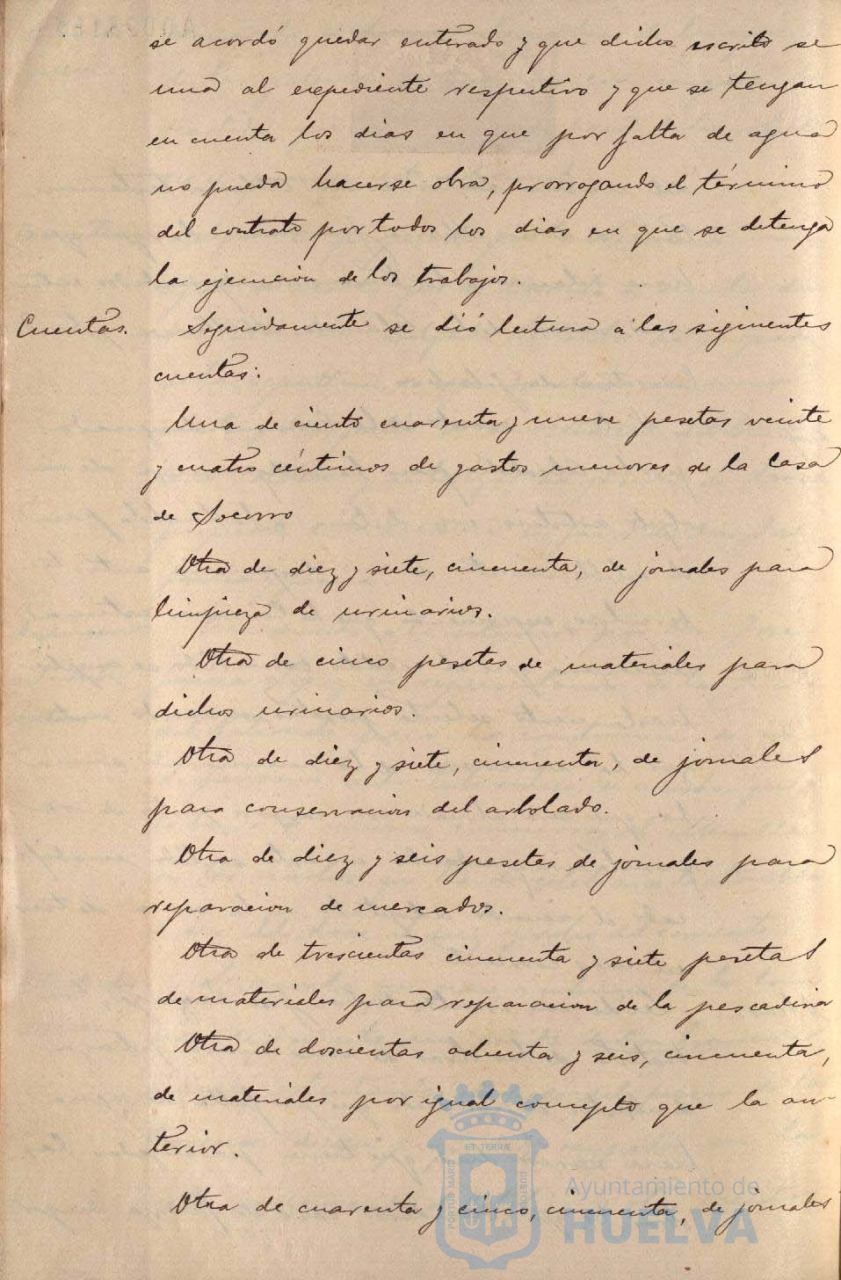 se acordó quedar enterado y que dicho escrito se
una al expediente respectivo y que se tengan
en cuenta los dias en que por falta de agua
no pueda hacerse obra, prorrogando el término
del contrato por todos los dias en que se detenga
la ejecucion de los trabajos.
Cuentas. Seguidamente se dió lectura á las siguientes
cuentas:
Una de ciento cuarenta y nueve pesetas veinte
y cuatro céntimos de gastos menores de la Casa
de Socorro
Otra de diez y siete, cincuenta, de jornales para
limpieza de urinarios.
Otra de cinco pesetas de materiales para
dichos urinarios.
Otra de diez y siete, cincuenta, de jornales
para conservacion del arbolado.
Otra de diez y seis pesetas de jornales para
reparacion de mercados.
Otra de trescientas cincuenta y siete pesetas
de materiales para reparacion de la pescaderia
Otra de doscientas ochenta y seis, cincuenta,
de materiales por igual concepto que la an-
terior.
Otra de cuarenta y cinco, cincuenta, de jornales
PORTUS MARIS ET TERRAE CUSTODIA
Ayuntamiento de
HUELVA